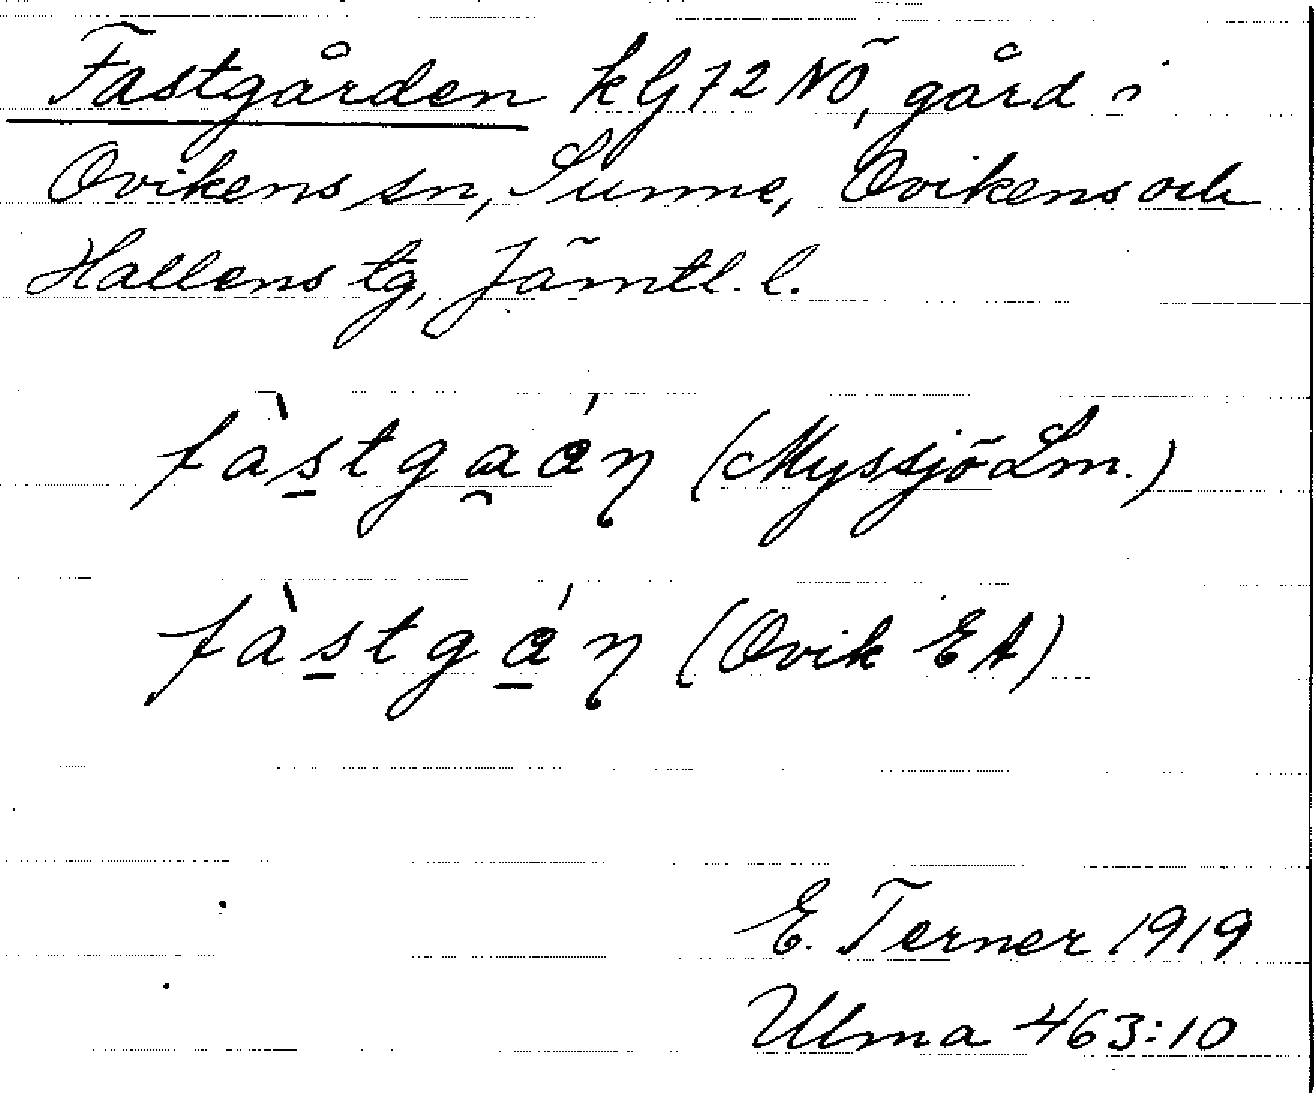 Fastgården kG72NÖ, gård i
Ovikens sn, Sunne, Ovikens och
Hallens tg, Jämtl. l.
fàs̲tga̯áŋ (Myssjö Lm.)
fàs̲tgá̲ŋ (Ovik EA)
E. Terner 1919
Ulma 463:10